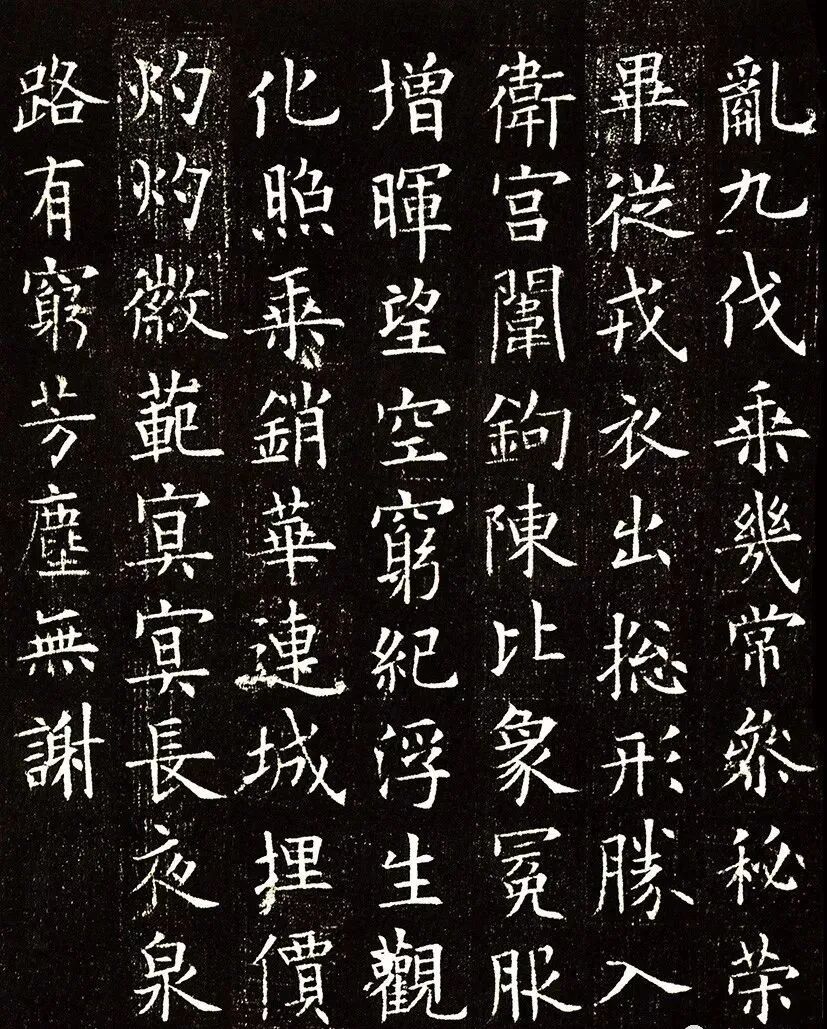 亂九伐乘幾常參秘荣
畢從戎衣出捴形勝入
衛宫闈鉤陳比象冕服
増暉望空窮紀浮生觀
化照乘銷華連城埋價
灼灼徽範寘寘長夜泉
路有窮芳塵無謝